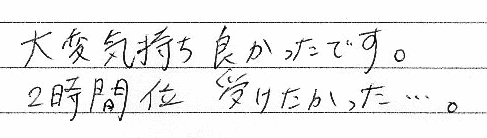 大変気持ち良かったです。
2時間位 受けたかった…。